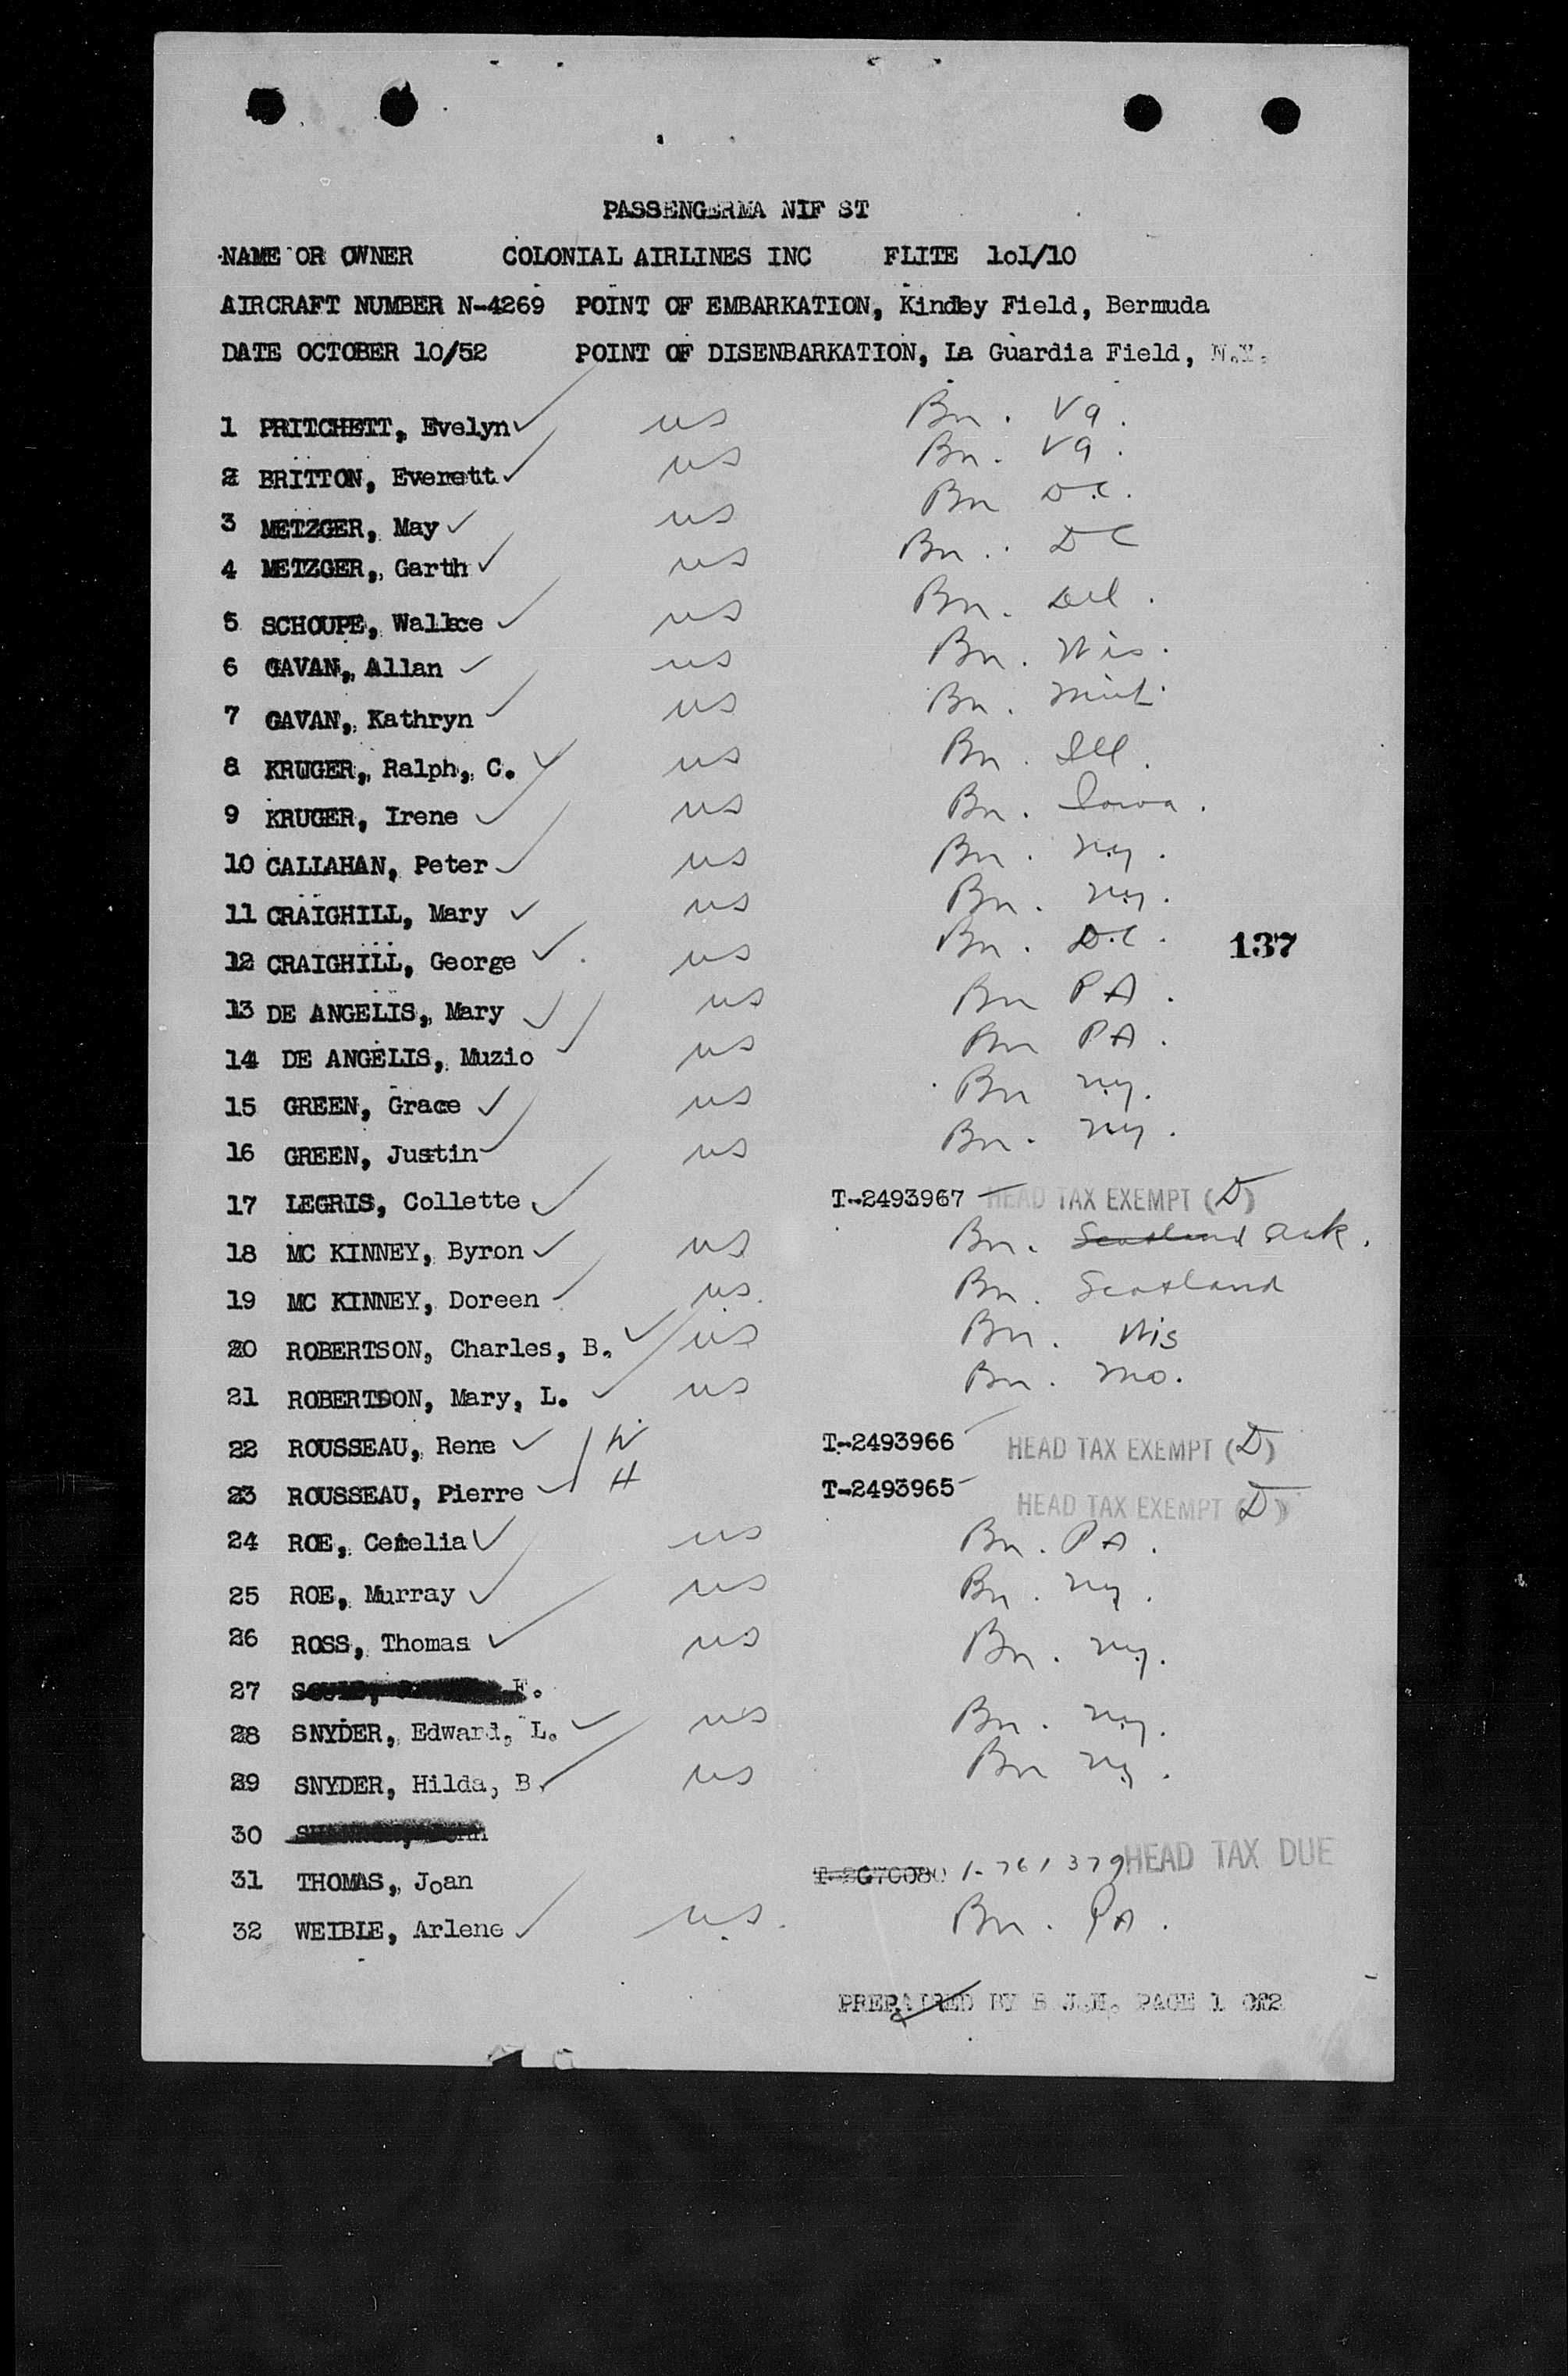 PASSENGERMA NIF ST
NAME OR OWNER COLONIAL AIRLINES INC FLITE 1o1/10
AIRCRAFT NUMBER N-4269 POINT OF EMBARKATION, Kindley Field, Bermuda
DATE OCTOBER 10/52 POINT OF DISENBARKATION, La Guardia Field, N.Y.
1 PRITCHETT, Evelyn ✓ us Bn. Va.
2 BRITTON, Everett ✓ us Bn. Va.
3 METZGER, May ✓ us Bn D.C.
4 METZGER, Garth ✓ us Bn. DC
5 SCHOUPE, Wallace ✓ us Bn. Del.
6 GAVAN, Allan ✓ us Bn. Wis.
7 GAVAN, Kathryn ✓ us Bn. Mich.
8 KRUGER, Ralph, C. ✓ us Bn. Ill.
9 KRUGER, Irene ✓ us Bn. Iowa.
10 CALLAHAN, Peter ✓ us Bn. N.Y.
11 CRAIGHILL, Mary ✓ us Bn. N.Y.
12 CRAIGHILL, George ✓ us Bn. D.C. 137
13 DE ANGELIS, Mary ✓ us Bn PA.
14 DE ANGELIS, Muzio ✓ us Bn PA.
15 GREEN, Grace ✓ us Bn N.Y.
16 GREEN, Justin ✓ us Bn. N.Y.
17 LEGRIS, Collette ✓ T-2493967 HEAD TAX EXEMPT (D)
18 MC KINNEY, Byron ✓ us Bn. Scotland Ark.
19 MC KINNEY, Doreen ✓ us. Bn. Scotland
20 ROBERTSON, Charles, B. ✓ us Bn. Wis
21 ROBERTDON, Mary, L. ✓ us Bn. Mo.
22 ROUSSEAU, Rene ✓ W T-2493966 HEAD TAX EXEMPT (D)
23 ROUSSEAU, Pierre ✓ H T-2493965 HEAD TAX EXEMPT (D)
24 ROE, Cecelia ✓ us Bn. PA.
25 ROE, Murray ✓ us Bn. N.Y.
26 ROSS, Thomas ✓ us Bn. N.Y.
27 F.
28 SNYDER, Edward, L. ✓ us Bn. N.Y.
29 SNYDER, Hilda, B. ✓ us Bn N.Y.
30
31 THOMAS, Joan 1-761379 HEAD TAX DUE
32 WEIBLE, Arlene ✓ us. Bn. PA.
PREPAIRED BY J.H. PAGE 1 Of2